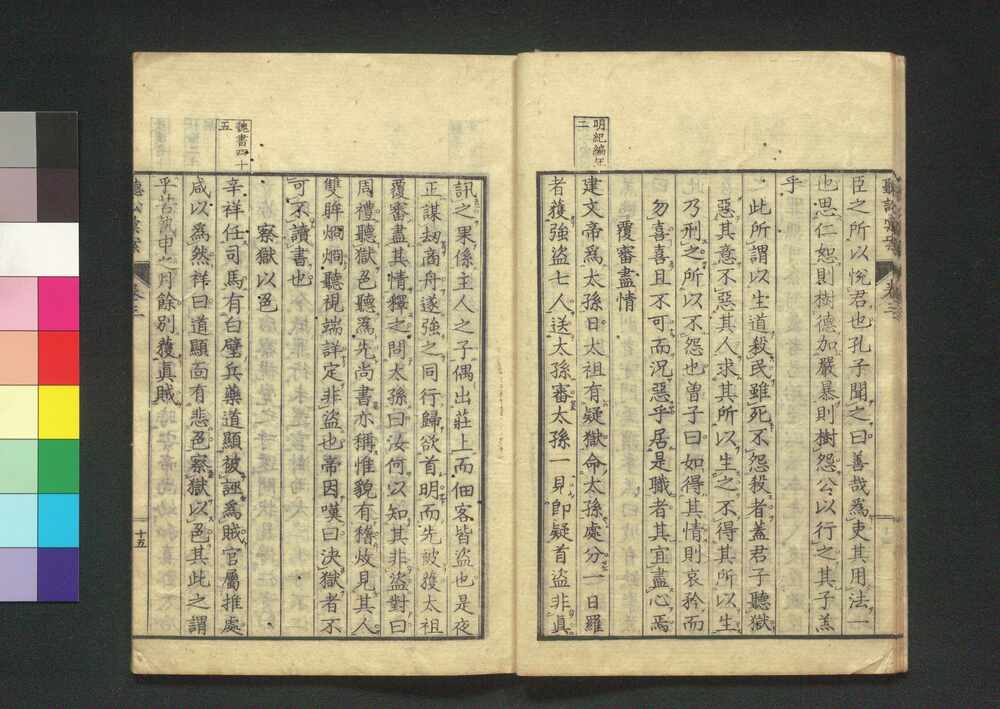 明紀編年
二
臣之所以悅君也孔子聞之曰善哉爲吏其用法一
也思仁恕則樹德加嚴暴則樹怨公以行之其子羔
乎
此所謂以生道殺民雖死不怨殺者蓋君子聽獄
惡其意不惡其人求其所以生之不得其所以生
乃刑之所以不怨也曽子曰如得其情則哀矜而
勿喜喜且不可而況惡乎居是職者其宜盡心焉
覆審盡情
建文帝爲太孫日太祖有疑獄命太孫處分一日羅
者獲強盜七人送太孫審太孫一見即疑首盜非真
訊之果係主人之子偶出莊上而佃客皆盜也是夜
正謀劫商舟遂強之同行歸欲首明而先被獲太祖
覆審盡其情釋之問太孫曰汝何以知其非盜對曰
周禮聽獄色聽爲先尚書亦稱惟貌有稽炊見其人
雙眸烱烱聽視端詳定非盜也帝因嘆曰決獄者不
可不讀書也
魏書四十
五
察獄以色
辛祥任司馬有白璧兵藥道顯被誣爲賊官屬推處
咸以爲然祥曰道顯面有悲色察獄以色其此之謂
乎苦執申之月餘別獲真賊
卷三
十五